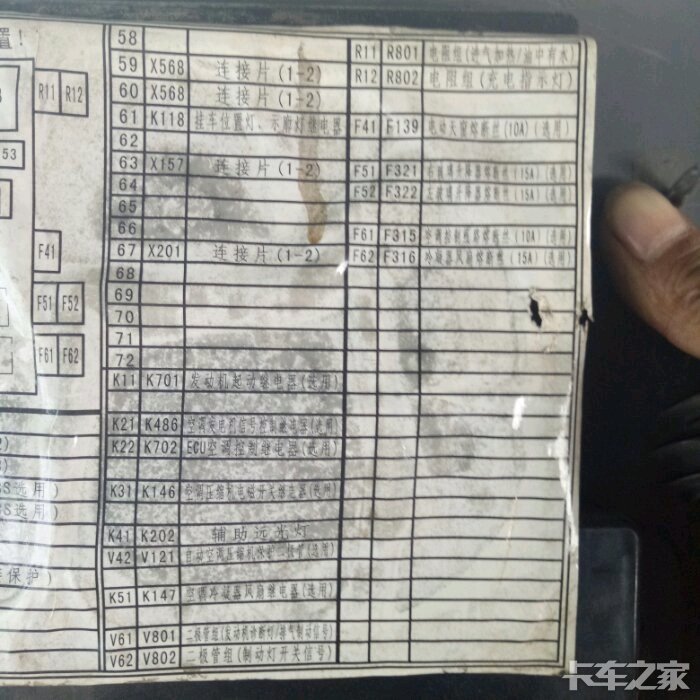 置!
R11 R12
53
F41
F51 F52
F61 F62
选用)
S选用)
保护)
58
59 X568 连接片(1-2)
60 X568 连接片(1-2)
61 K118 挂车位置灯、示廓灯继电器
62
63 X157 连接片(1-2)
64
65
66
67 X201 连接片(1-2)
68
69
70
71
72
K11 K701 发动机起动继电器(选用)
K21 K486 空调发电机信号控制继电器(选用)
K22 K702 ECU空调控制继电器(选用)
K31 K146 空调压缩机电磁开关继电器(选用)
K41 K202 辅助远光灯
V42 V121 自动空调压缩机保护二极管(选用)
K51 K147 空调冷凝器风扇继电器(选用)
V61 V801 二极管组(发动机诊断灯/排气制动信号)
V62 V802 二极管组(制动灯开关信号)
R11 R801 电阻组(进气加热/油中有水)
R12 R802 电阻组(充电指示灯)
F41 F139 电动天窗熔断丝(10A)(选用)
F51 F321 右玻璃升降器熔断丝(15A)(选用)
F52 F322 左玻璃升降器熔断丝(15A)(选用)
F61 F315 空调控制熔断丝(10A)(选用)
F62 F316 冷凝器风扇熔断丝(15A)(选用)
卡车之家